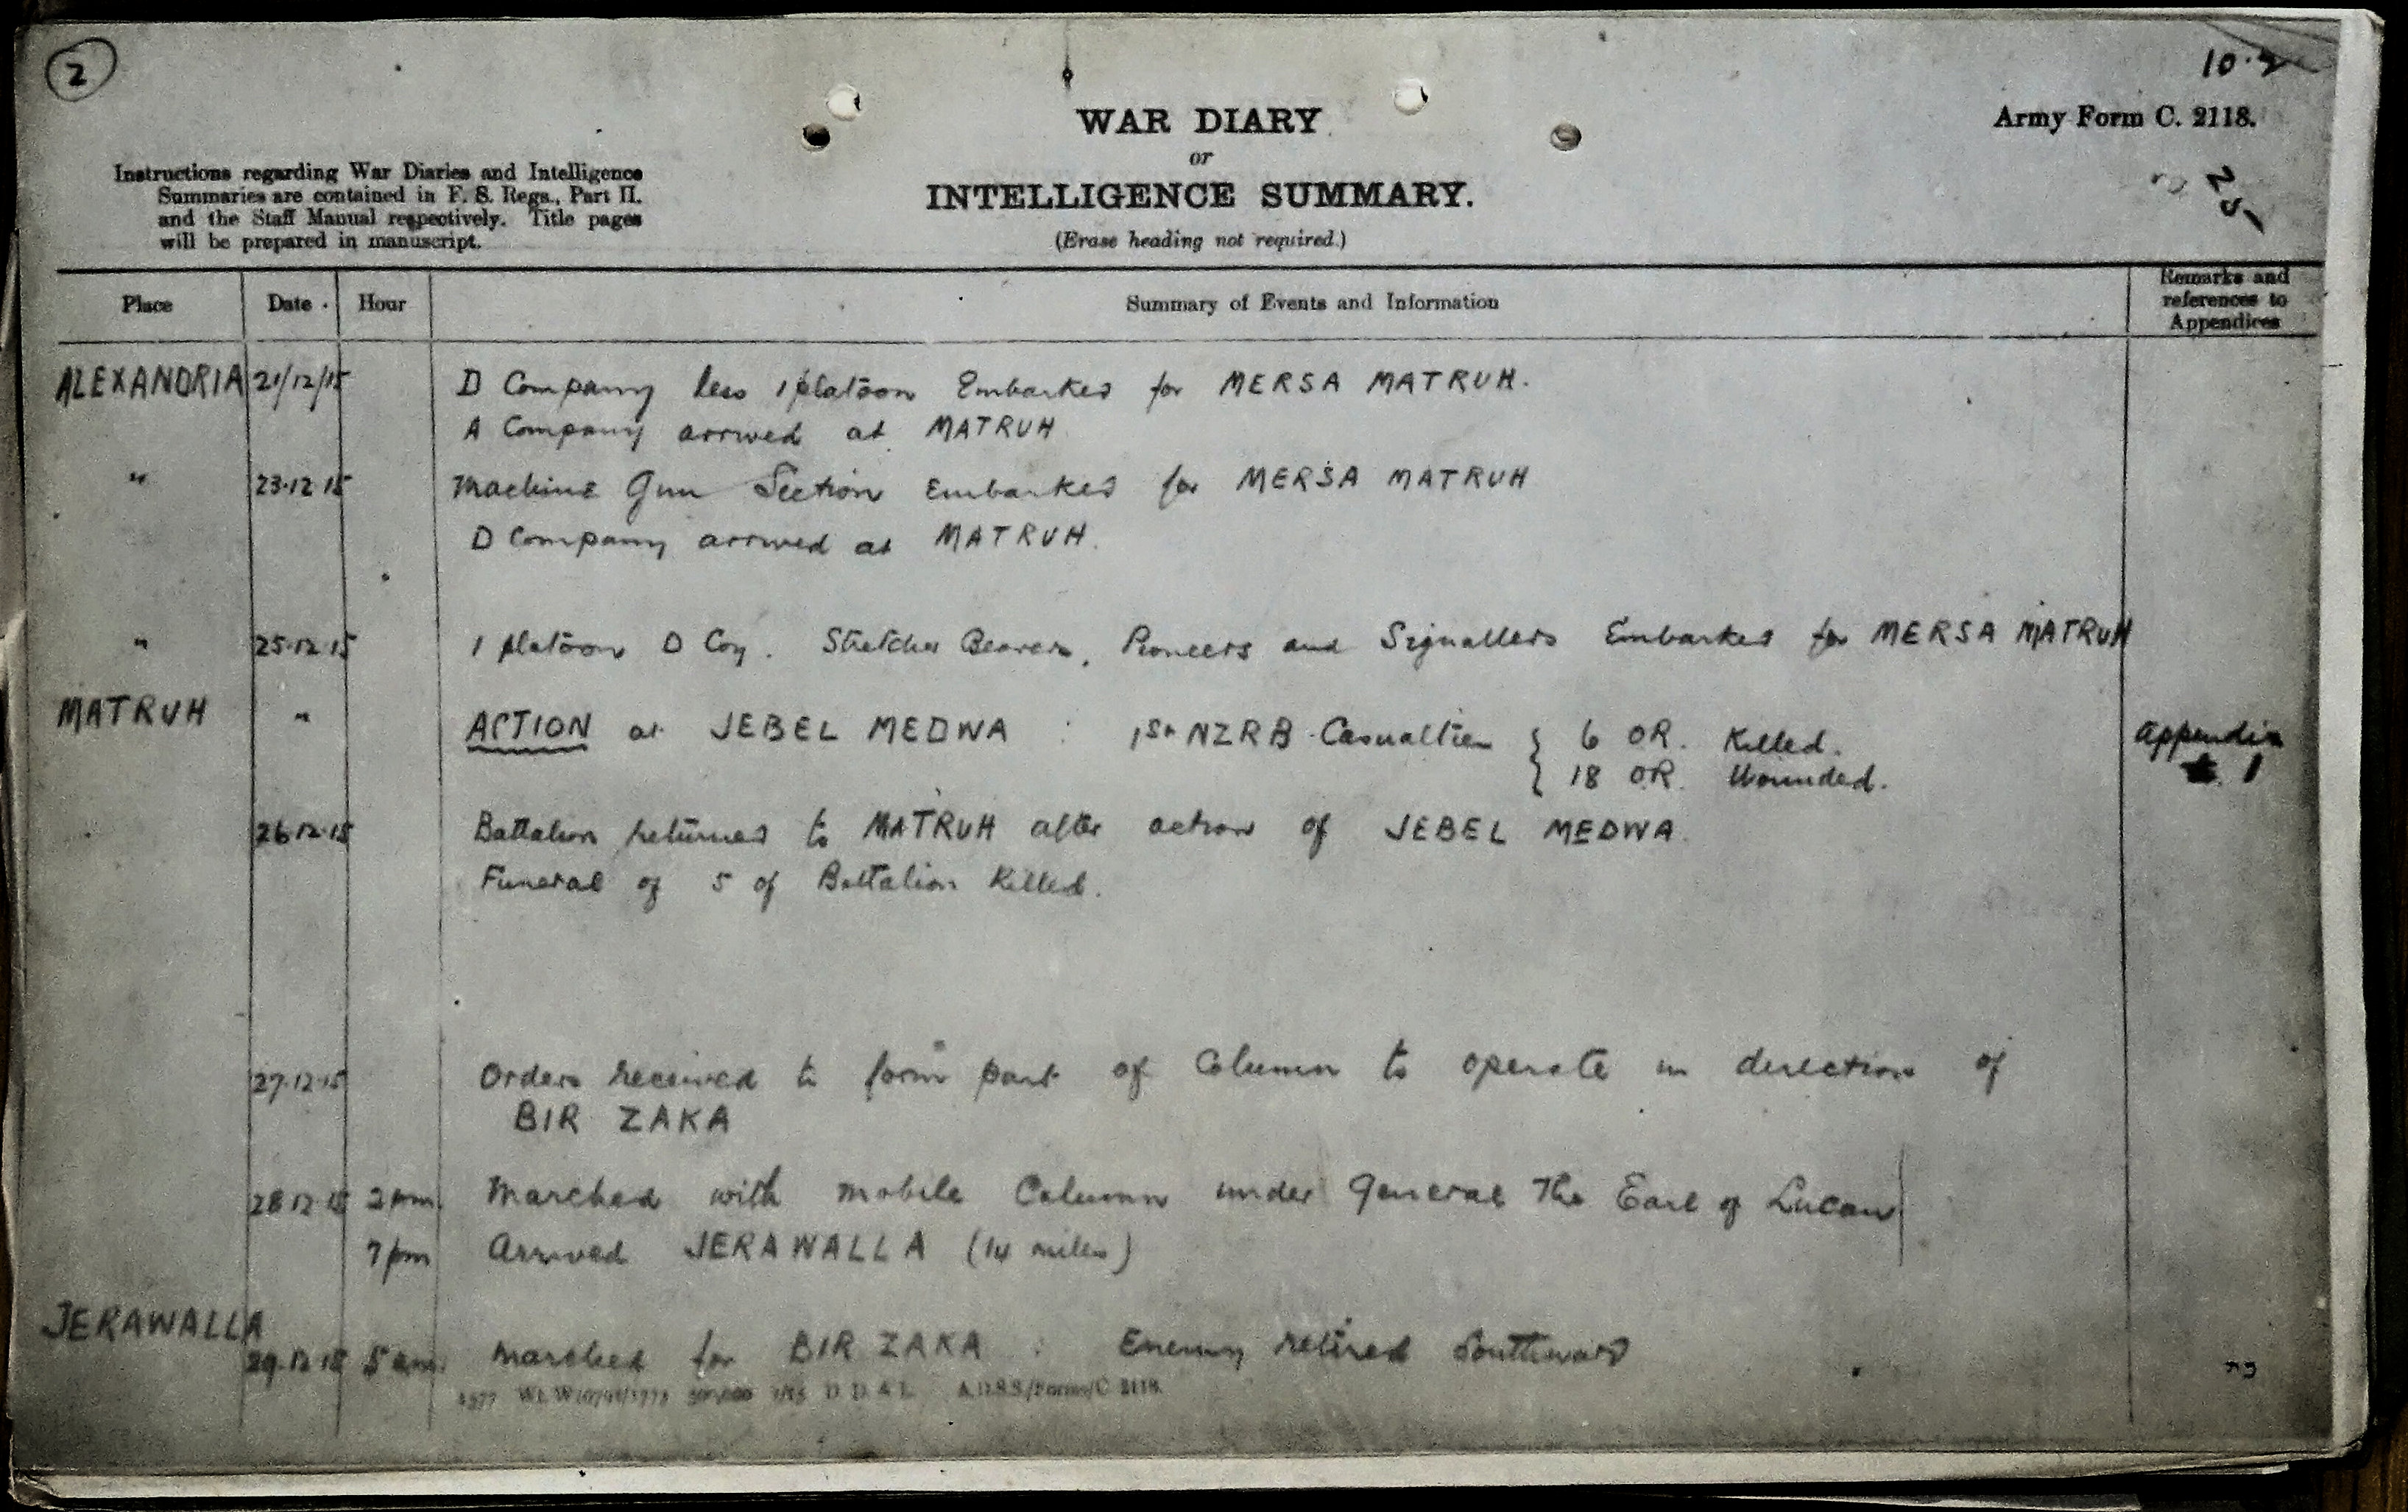 2
WAR DIARY
or
INTELLIGENCE SUMMARY.
(Erase heading not required.)
Army Form C. 2118.
Instructions regarding War Diaries and Intelligence
Summaries are contained in F. S. Regs., Part II.
and the Staff Manual respectively. Title pages
will be prepared in manuscript.
Place Date Hour Summary of Events and Information Remarks and references to Appendices
ALEXANDRIA 21/12/15 D Company less 1 platoon Embarked for MERSA MATRUH.
A Company arrived at MATRUH
" 23.12.15 Machine Gun Section Embarked for MERSA MATRUH
D Company arrived at MATRUH.
" 25.12.15 1 platoon D Coy. Stretcher Bearers, Pioneers and Signallers Embarked for MERSA MATRUH
MATRUH " ACTION at JEBEL MEDWA : 1st NZRB Casualties { 6 OR. Killed. Appendix
{ 18 OR. Wounded. 1
26.12.15 Battalion returned to MATRUH after action of JEBEL MEDWA.
Funeral of 5 of Battalion Killed.
27.12.15 Orders received to form part of Column to operate in direction of
BIR ZAKA
28.12.15 2pm. Marched with mobile Column under General The Earl of Lucan
7pm Arrived JERAWALLA (14 miles)
JERAWALLA
29.12.15 5am. Marched for BIR ZAKA : Enemy retired Southward
D. D. & L. A.D.S.S./Forms/C. 2118.